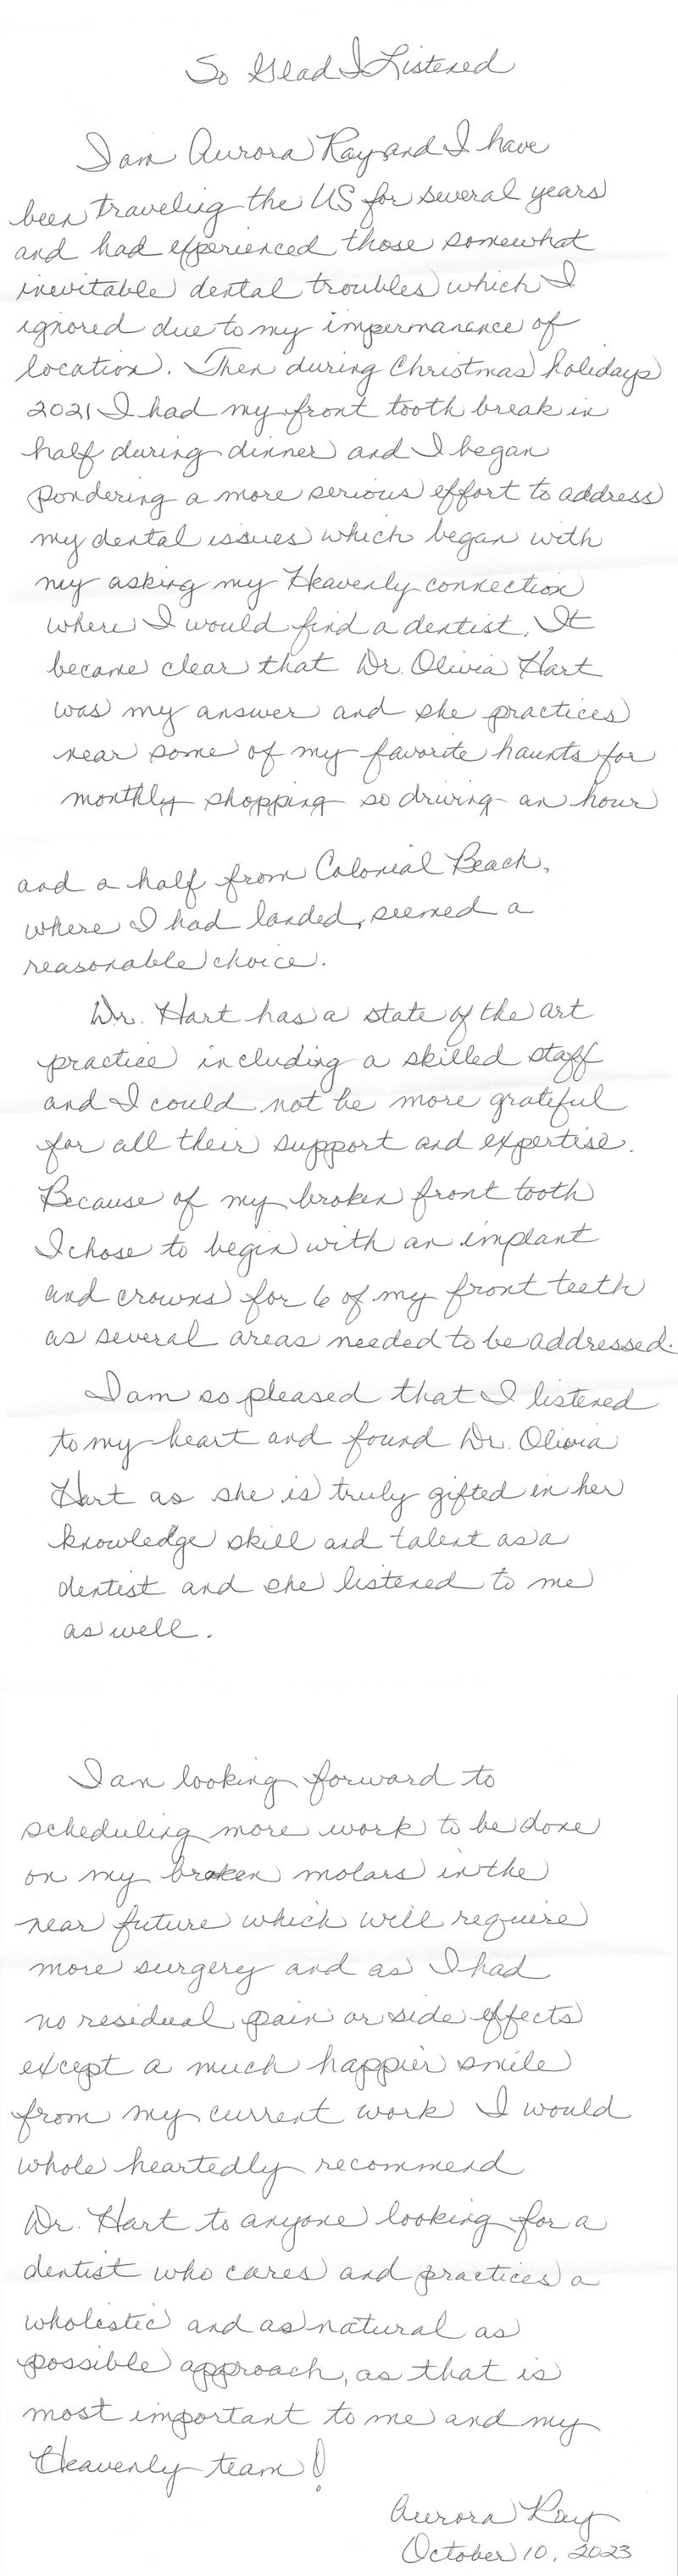 So Glad I Listened
I am Aurora Ray and I have
been traveling the US for several years
and had experienced those somewhat
inevitable dental troubles which I
ignored due to my impermanence of
location. Then during Christmas holidays
2021 I had my front tooth break in
half during dinner and I began
pondering a more serious effort to address
my dental issues which began with
my asking my Heavenly connection
where I would find a dentist. It
became clear that Dr. Olivia Hart
was my answer and she practices
near some of my favorite haunts for
monthly shopping so driving an hour
and a half from Colonial Beach,
where I had landed, seemed a
reasonable choice.
Dr. Hart has a state of the art
practice including a skilled staff
and I could not be more grateful
for all their support and expertise.
Because of my broken front tooth
I chose to begin with an implant
and crowns for 6 of my front teeth
as several areas needed to be addressed.
I am so pleased that I listened
to my heart and found Dr. Olivia
Hart as she is truly gifted in her
knowledge skill and talent as a
dentist and she listened to me
as well.
I am looking forward to
scheduling more work to be done
on my broken molars in the
near future which will require
more surgery and as I had
no residual pain or side effects
except a much happier smile
from my current work I would
whole heartedly recommend
Dr. Hart to anyone looking for a
dentist who cares and practices a
wholistic and as natural as
possible approach, as that is
most important to me and my
Heavenly team!
Aurora Ray
October 10, 2023